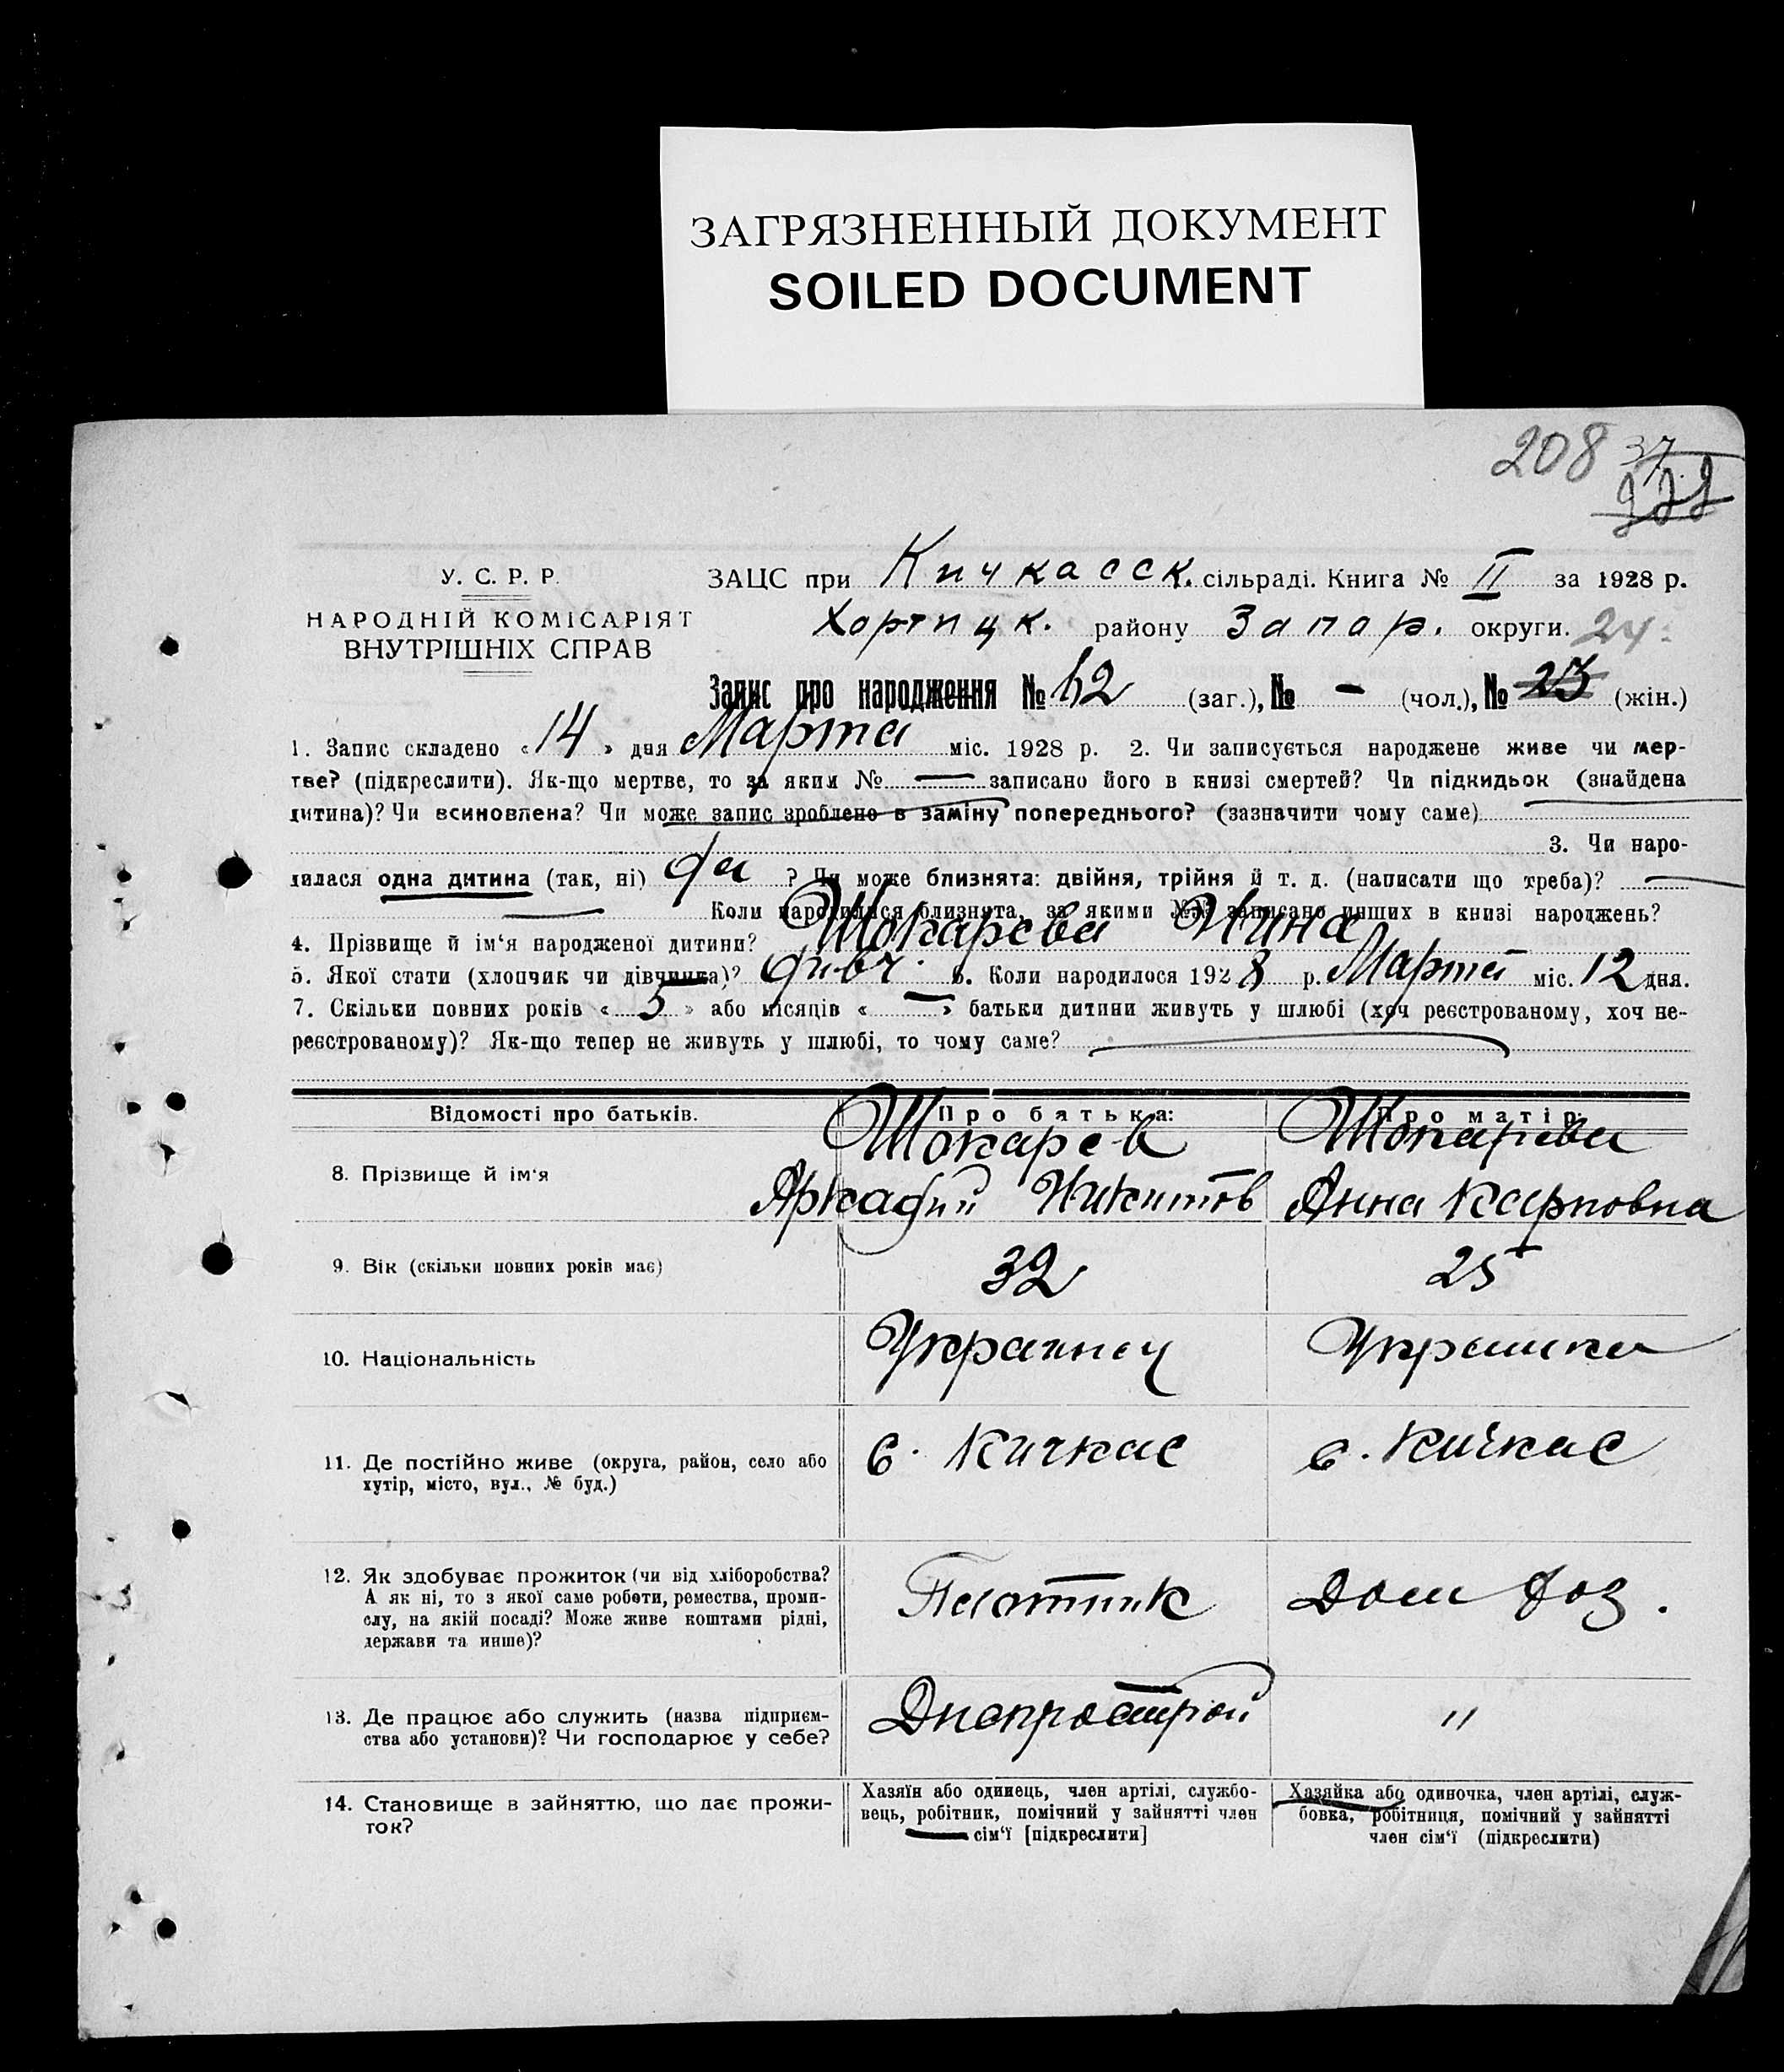 ЗАГРЯЗНЕННЫЙ ДОКУМЕНТ
SOILED DOCUMENT
208 37
У. С. Р. Р.
НАРОДНІЙ КОМІСАРІЯТ
ВНУТРІШНІХ СПРАВ
ЗАЦС при Кичкасск. сільраді. Книга № II за 1928 р.
Хортицк. району Запор. округи. 24.
Запис про народження № 62 (заг.), № - (чол.), № 23 (жін.)
1. Запис складено « 14 » дня Марта міс. 1928 р. 2. Чи записується народжене живе чи мер-
тве? (підкреслити). Як-що мертве, то за яким № — записано його в книзі смертей? Чи підкидьок (знайдена
дитина)? Чи всиновлена? Чи може запис зроблено в заміну попереднього? (зазначити чому саме)
3. Чи наро-
дилася одна дитина (так, ні) да ? Чи може близнята: двійня, трійня й т. д. (написати що треба)? —
— Коли народилися близнята, за якими №№ записано инших в книзі народжень?
4. Прізвище й ім'я народженої дитини? Токарева Нина
5. Якої стати (хлопчик чи дівчинка)? дивч. 6. Коли народилося 1928 р. Марта міс. 12 дня.
7. Скільки повних років « 5 » або місяців « — » батьки дитини живуть у шлюбі (хоч реєстрованому, хоч не-
реєстрованому)? Як-що тепер не живуть у шлюбі, то чому саме?
Відомості про батьків. Про батька: Про матір:
8. Прізвище й ім'я
Токарев
Аркадий Никитов
Токарева
Анна Карповна
9. Вік (скільки повних років має) 32 25
10. Національність Украинец Украинка
11. Де постійно живе (округа, район, село або
хутір, місто, вул., № буд.)
с. Кичкас
с. Кичкас
12. Як здобуває прожиток (чи від хліборобства?
А як ні, то з якої саме роботи, ремества, проми-
слу, на якій посаді? Може живе коштами рідні,
держави та инше)?
Плотник
Дом хоз.
13. Де працює або служить (назва підприєм-
ства або установи)? Чи господарює у себе?
Днепрострой
"
14. Становище в зайняттю, що дає прожи-
ток?
Хазяїн або одинець, член артілі, службо-
вець, робітник, помічний у зайнятті член
сім'ї [підкреслити]
Хазяйка або одиночка, член артілі, служ-
бовка, робітниця, помічний у зайнятті
член сім'ї (підкреслити)